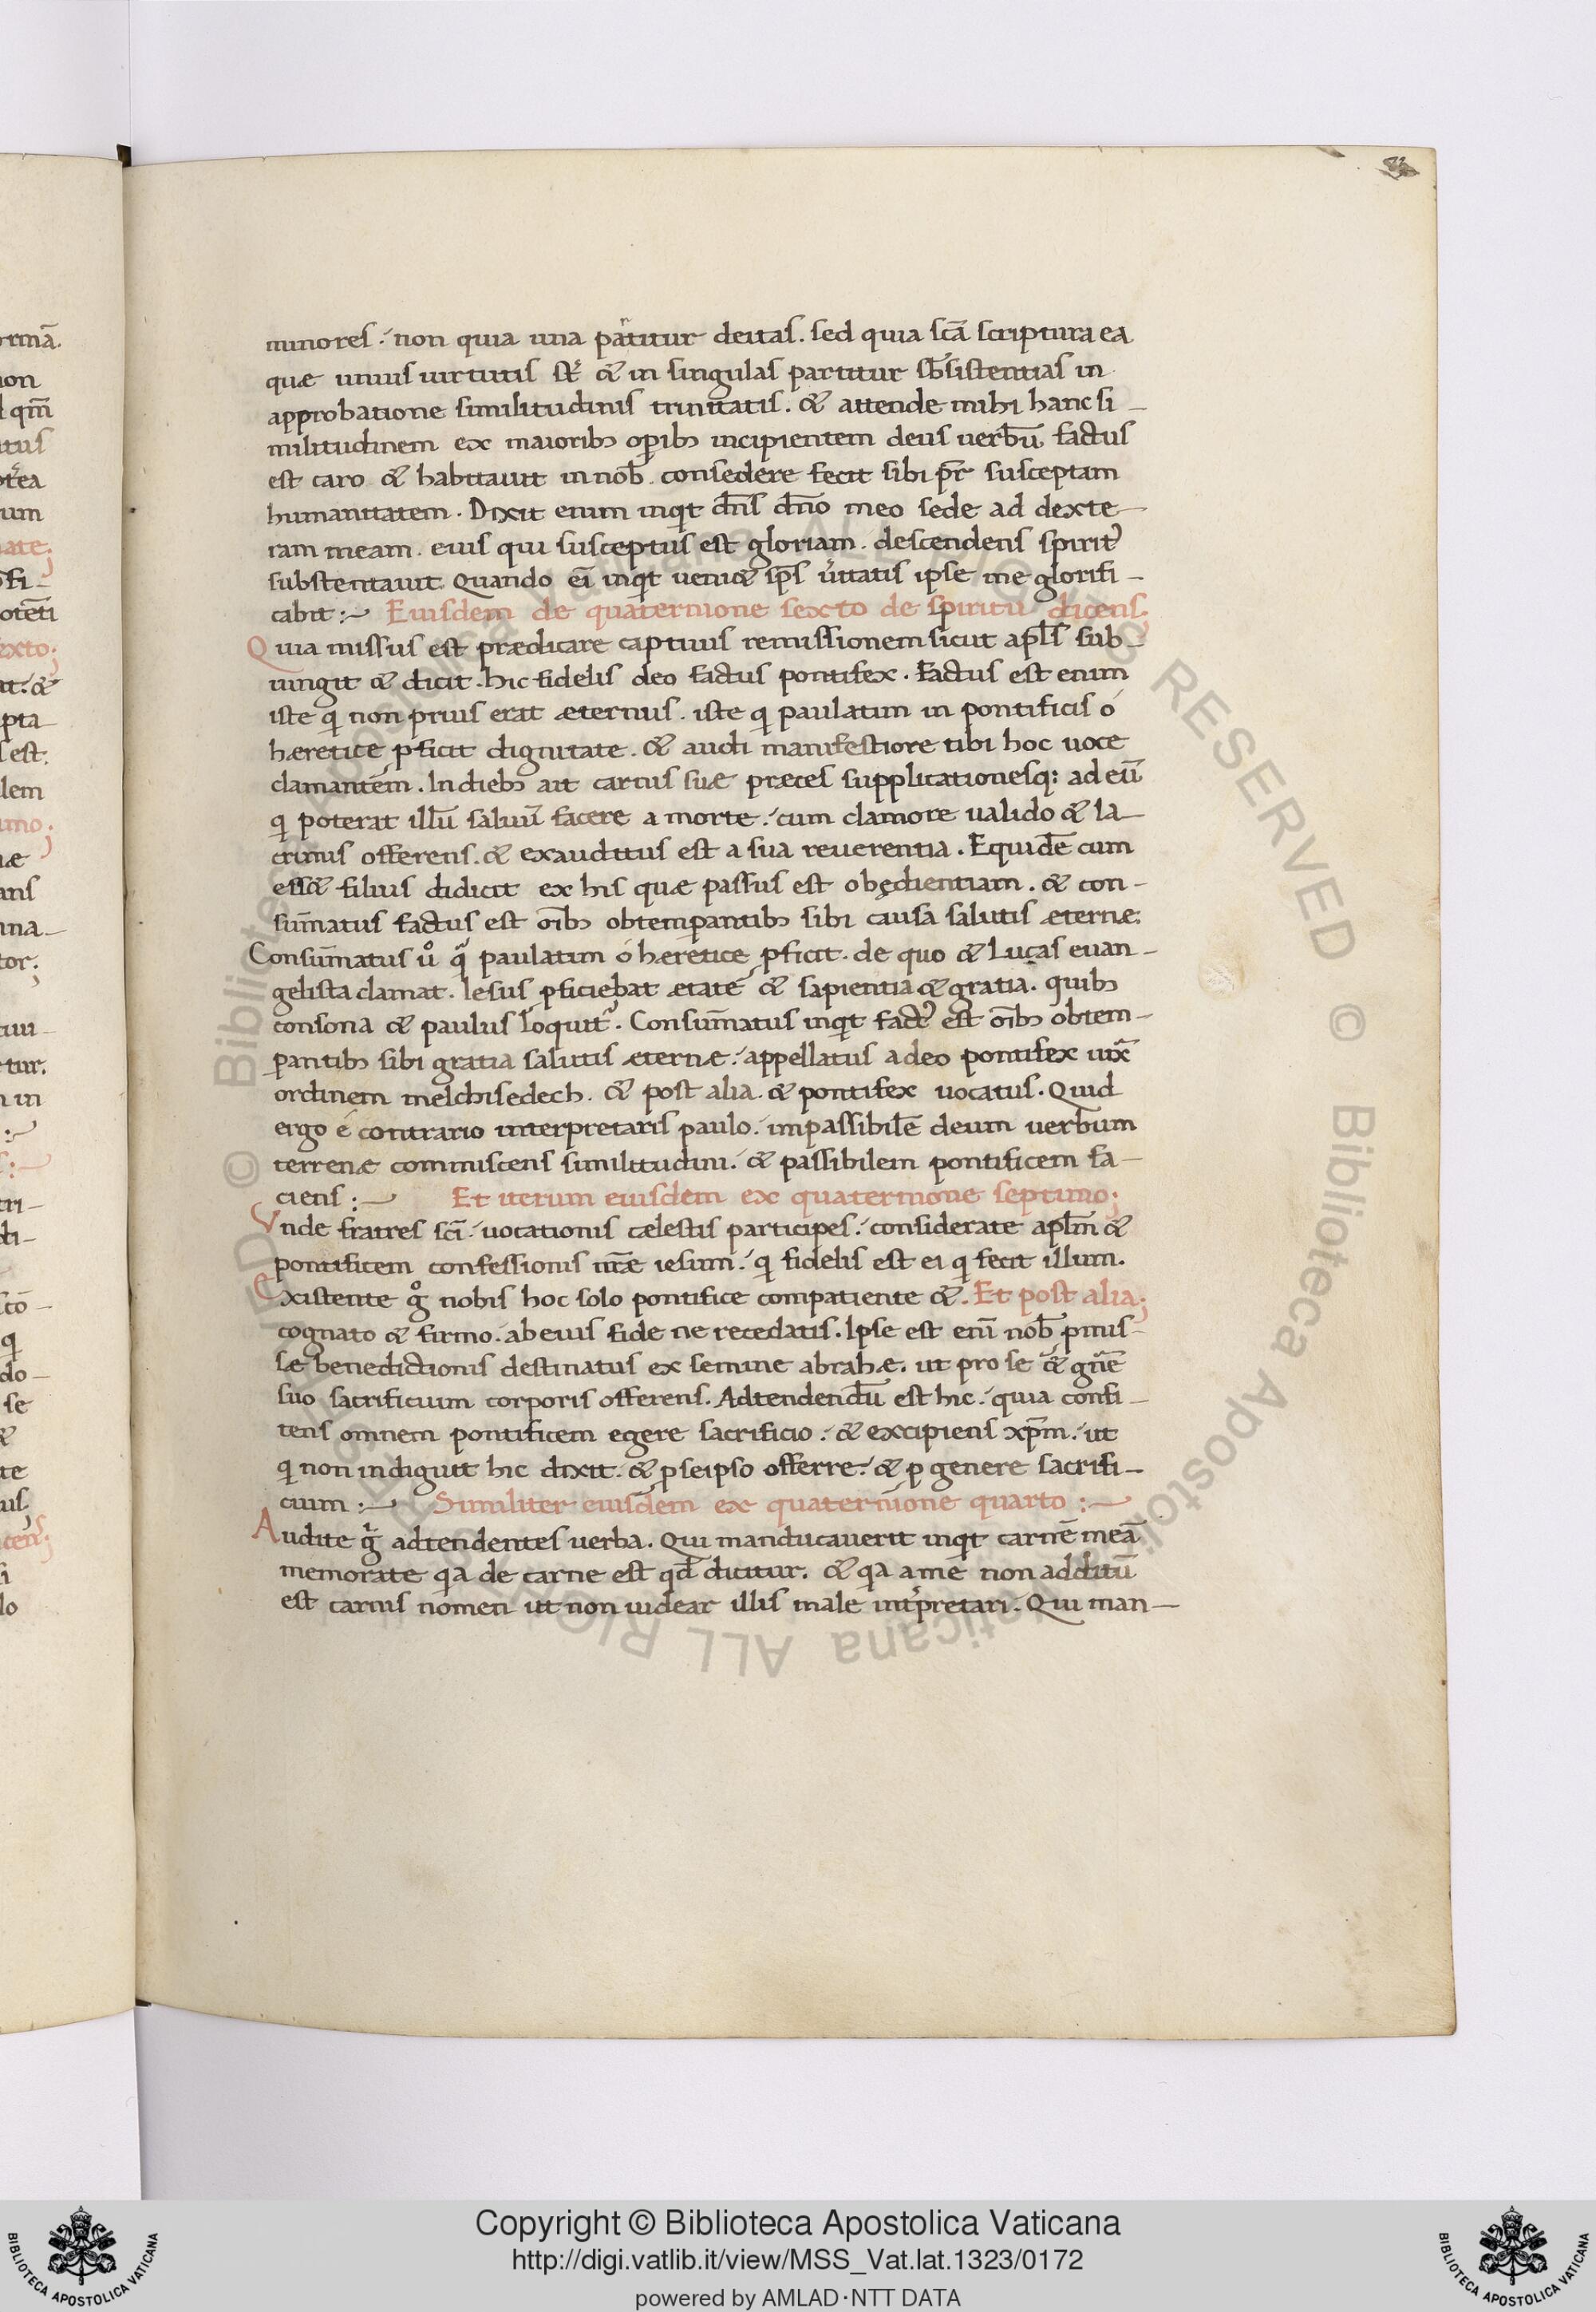 minores. non quia una partitur deitas. sed quia scā scriptura ea
quæ unius uirtutis st̄ & in singulas partitur sb̄sistentias in
approbatione similitudinis trinitatis. & attende mihi hanc si-
militudinem ex maiorib; opib; incipientem deus uerbū factus
est caro & habitauit in nob̄. consedere fecit sibi pr̄ susceptam
humanitatem. Dixit enim inqt dn̄s dn̄o meo sede ad dexte-
ram meam. eius qui susceptus est gloriam. descendens spirit᾽
substentauit Quando ei inqt ueni& sp̄s ūitatis ipse me glorifi-
cabit :- Eiusdem de quaternione sexto de spiritu dicens;
Quia missus est prædicare captiuis remissionem sicut apl̄s sub-
iungit & dicit. hic fidelis deo factus pontifex. Factus est enim
iste qi non prius erat æternus. iste qi paulatim in pontificis ó
hæretice pficit dignitate. & audi manifestiore tibi hoc uoce
clamantem. In dieb; ait carnis suæ præces supplicationesq; ad eū
qi poterat illū saluū facere a morte. cum clamore ualido & la-
crimis offerens. & exauditus est a sua reuerentia. Equidē cum
ess& filius didicit ex his quæ passus est obędientiam. & con-
sum̄atus factus est oīb; obtempantib; sibi causa salutis æternæ;
Consum̄atus ů q̄ paulatim ó hæretice pficit. de quo & Lucas euan-
gelista clamat. Iesus pficiebat ætate & sapientia & gratia. quib;
consona & paulus loquit᾽. Consum̄atus inqt fact᾽ est oīb; obtem-
pantib; sibi gratia salutis æternæ. appellatus a deo pontifex iux̄
ordinem melchisedech. & post alia. & pontifex uocatus. Quid
ergo é contrario interpretaris paulo. impassibilē deum uerbum
terrenæ commiscens similitudini. & passibilem pontificem fa-
ciens :- Et iterum eiusdem ex quaternione septimo;
Vnde fratres scī. uocationis cælestis participes. considerate apl̄m &
pontificem confessionis nr̄æ iesum. qi fidelis est ei qi fecit illum.
Existente g̊ nobis hoc solo pontifice compatiente &. Et post alia;
cognato & firmo. ab eius fide ne recedatis. Ipse est eni nob̄ pmis-
sæ benedictionis destinatus ex semine abrahæ. ut pro se & gn̄e
suo sacrificium corporis offerens. Adtendendū est hic. quia confi-
tens omnem pontificem egere sacrificio. & excipiens xp̄m. ut
qi non indiguit hic dixit. & p seipso offerre. & p genere sacrifi-
cium :- Similiter eiusdem ex quaternione quarto :-
Audite g̊ adtendentes uerba. Qui manducauerit inqt carnē meā
memorate qa de carne est qd̄ dicitur. & qa a me non additū
est carnis nomen ut non uidear illis male intpretari. Qui man-
Copyright © Biblioteca Apostolica Vaticana
http://digi.vatlib.it/view/MSS_Vat.lat.1323/0172
powered by AMLAD·NTT DATA